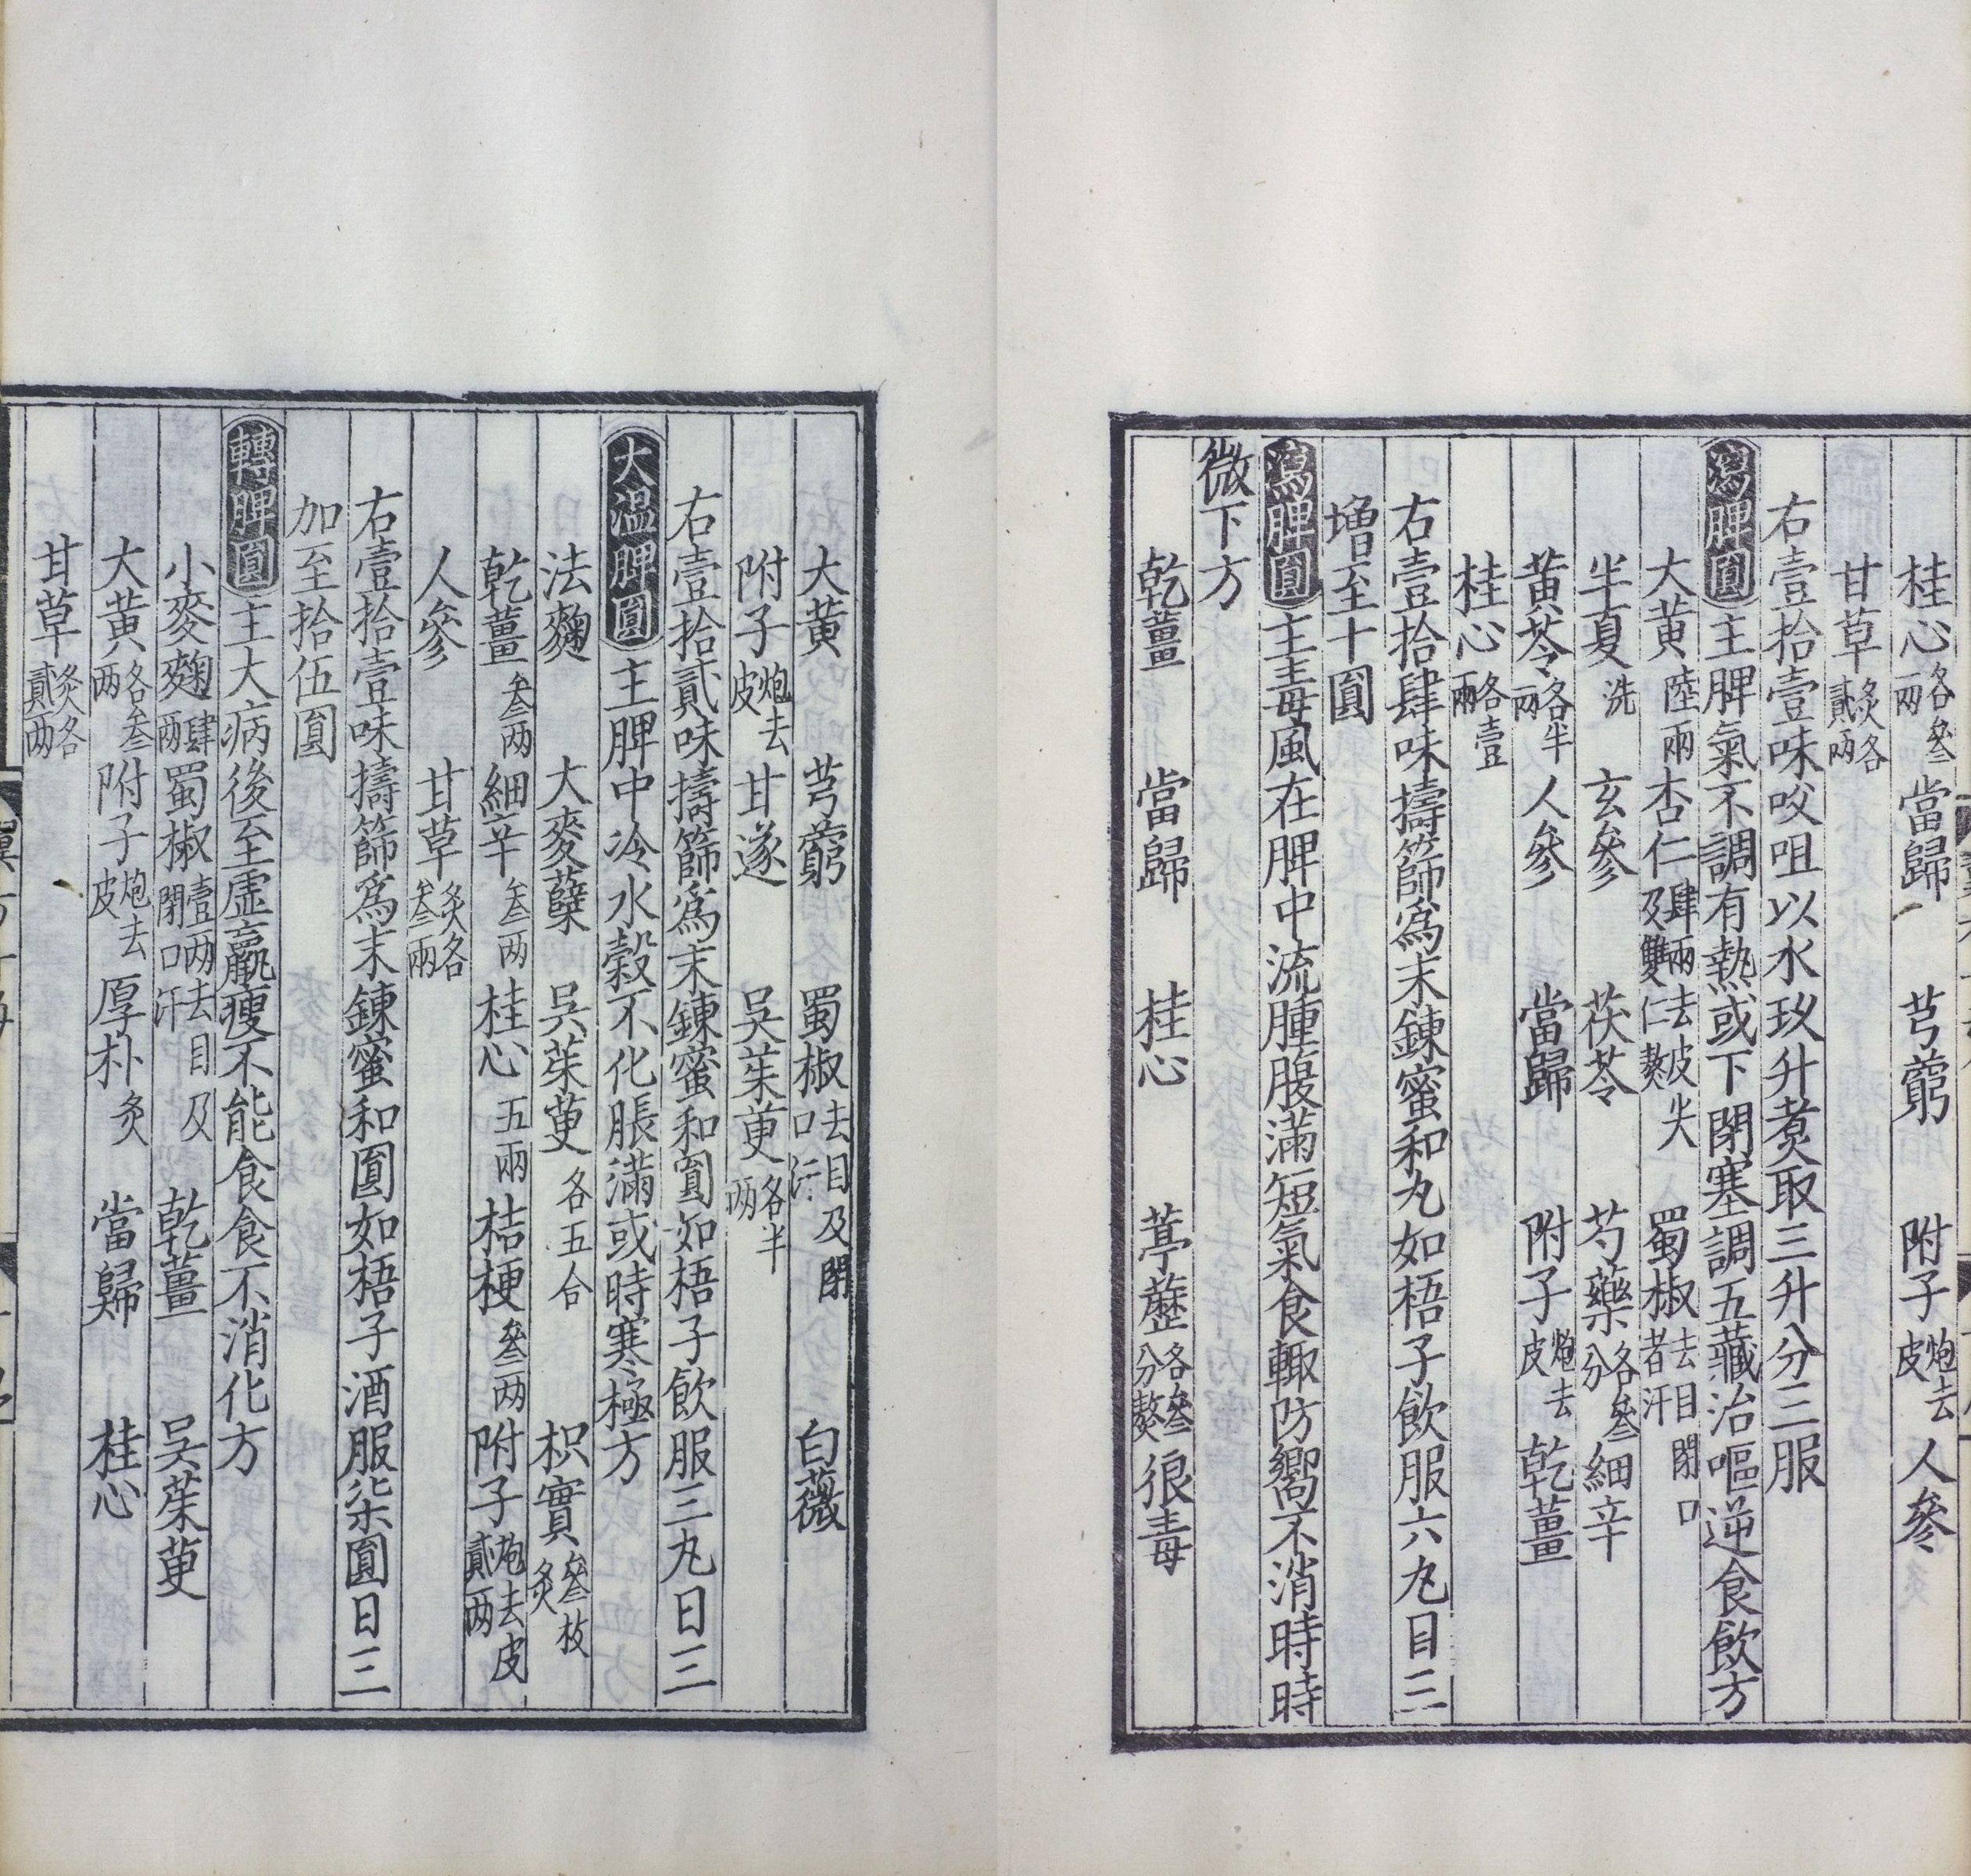 桂心各叁兩當歸 芎藭 附子炮去皮人參
甘草炙各貳兩
右壹拾壹味㕮咀以水玖升煑取三升分三服
瀉脾圓主脾氣不調有熱或下閉塞調五藏治嘔逆食飲方
大黄陸兩杏仁肆兩去皮尖及雙仁熬蜀椒去目閉口者汗
半夏洗 玄參 茯苓 芍藥各叁分細辛
黄芩各半兩人參 當歸 附子炮去皮乾薑
桂心各壹兩
右壹拾肆味擣篩爲末鍊蜜和丸如梧子飲服六丸日三
增至十圓
瀉脾圓主毒風在脾中流腫腹滿短氣食輙防嚮不消時時
微下方
乾薑 當歸 桂心 葶藶各叁分熬很毒
大黄 芎藭 蜀椒去目及閉口汗 白薇
附子炮去皮甘遂 吳茱萸各半兩
右壹拾貳味擣篩爲末鍊蜜和圓如梧子飲服三丸日三
大溫脾圓主脾中冷水穀不化脹滿或時寒極方
法麴 大麥蘖 吳茱萸各五合 枳實叁枚炙
乾薑叁兩細辛叁兩桂心五兩桔梗叁兩附子炮去皮貳兩
人參 甘草炙各叁兩
右壹拾壹味擣篩爲末鍊蜜和圓如梧子酒服柒圓日三
加至拾伍圓
轉脾圓主大病後至虛羸瘦不能食食不消化方
小麥麴肆兩蜀椒壹兩去目及閉口汗 乾薑 吳茱萸
大黄各叁兩附子炮去皮厚朴炙 當歸 桂心
甘草炙各貳兩